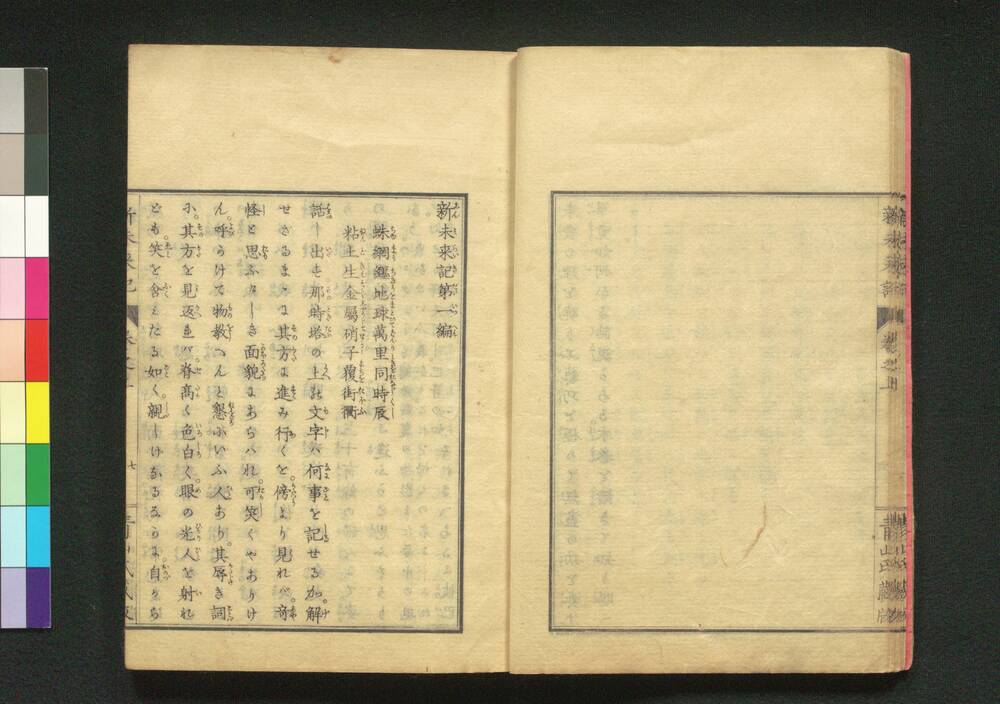 新未来記第一編
蛛網纏地球萬里同時辰
粘土生金屬硝子覆街衢
話一出も那時塔の上な文字ハ何事を記せるか。解
せさるまゝに其方に進み行くを。傍より見れハ。奇
怪と思ふへき面貌にあらハれ。可笑くやありけ
ん。呼らけて物教へんと懇ふいふ人あり。其辱き詞
に。其方を見返れハ脊髙く色白く眼の光人を射れ
とも笑を含えたる如く。親しけなるるうに。自から
新未来記
七
青山氏蔵版